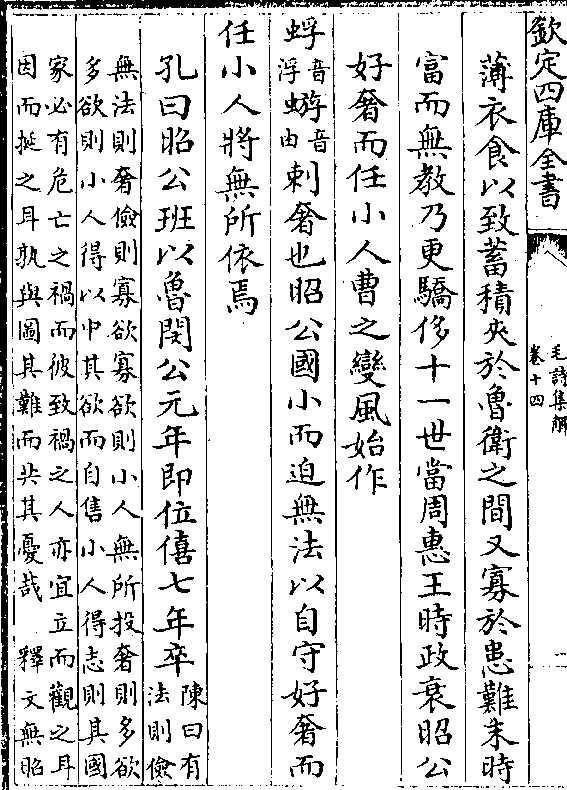 欽定四庫全書
毛詩集解
卷十四
薄衣食以致蓄積夾於魯衛之間又寡於患難末時
富而無教乃更驕侈十一世當周惠王時政衰昭公
好奢而任小人曹之變風始作
蜉音浮蝣音由刺奢也昭公國小而迫無法以自守好奢而
任小人將無所依焉
孔曰昭公班以魯閔公元年即位僖七年卒陳曰有法則儉
無法則奢儉則寡欲寡欲則小人無所投奢則多欲
多欲則小人得以中其欲而自售小人得志則其國
家必有危亡之禍而彼致禍之人亦宜立而觀之耳
因而挻之耳孰與圖其難而共其憂哉　釋文無昭